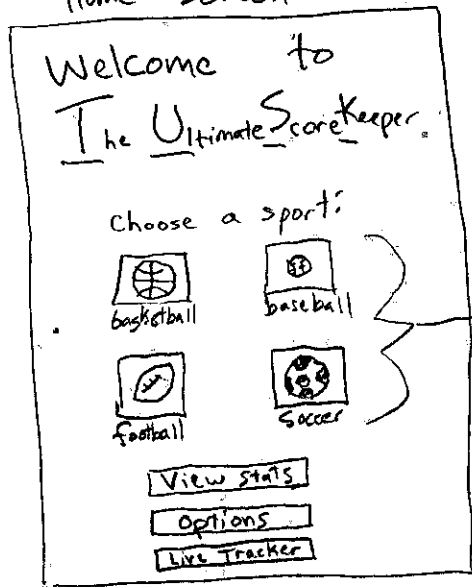 Home Screen
Welcome to
The Ultimate ScoreKeeper.
Choose a sport:
basketball baseball
football Soccer
View stats
Options
Live Tracker